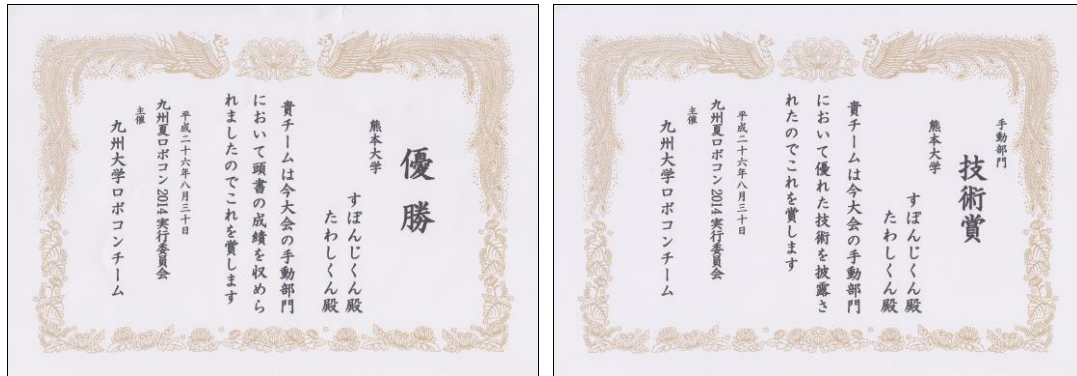 優勝
熊本大学
すぽんじくん殿
たわしくん殿
貴チームは今大会の手動部門
において頭書の成績を収めら
れましたのでこれを賞します
平成二十六年八月三十日
九州夏ロボコン2014実行委員会
主催
九州大学ロボコンチーム
手動部門
技術賞
熊本大学
すぽんじくん殿
たわしくん殿
貴チームは今大会の手動部門
において優れた技術を披露さ
れたのでこれを賞します
平成二十六年八月三十日
九州夏ロボコン2014実行委員会
主催
九州大学ロボコンチーム